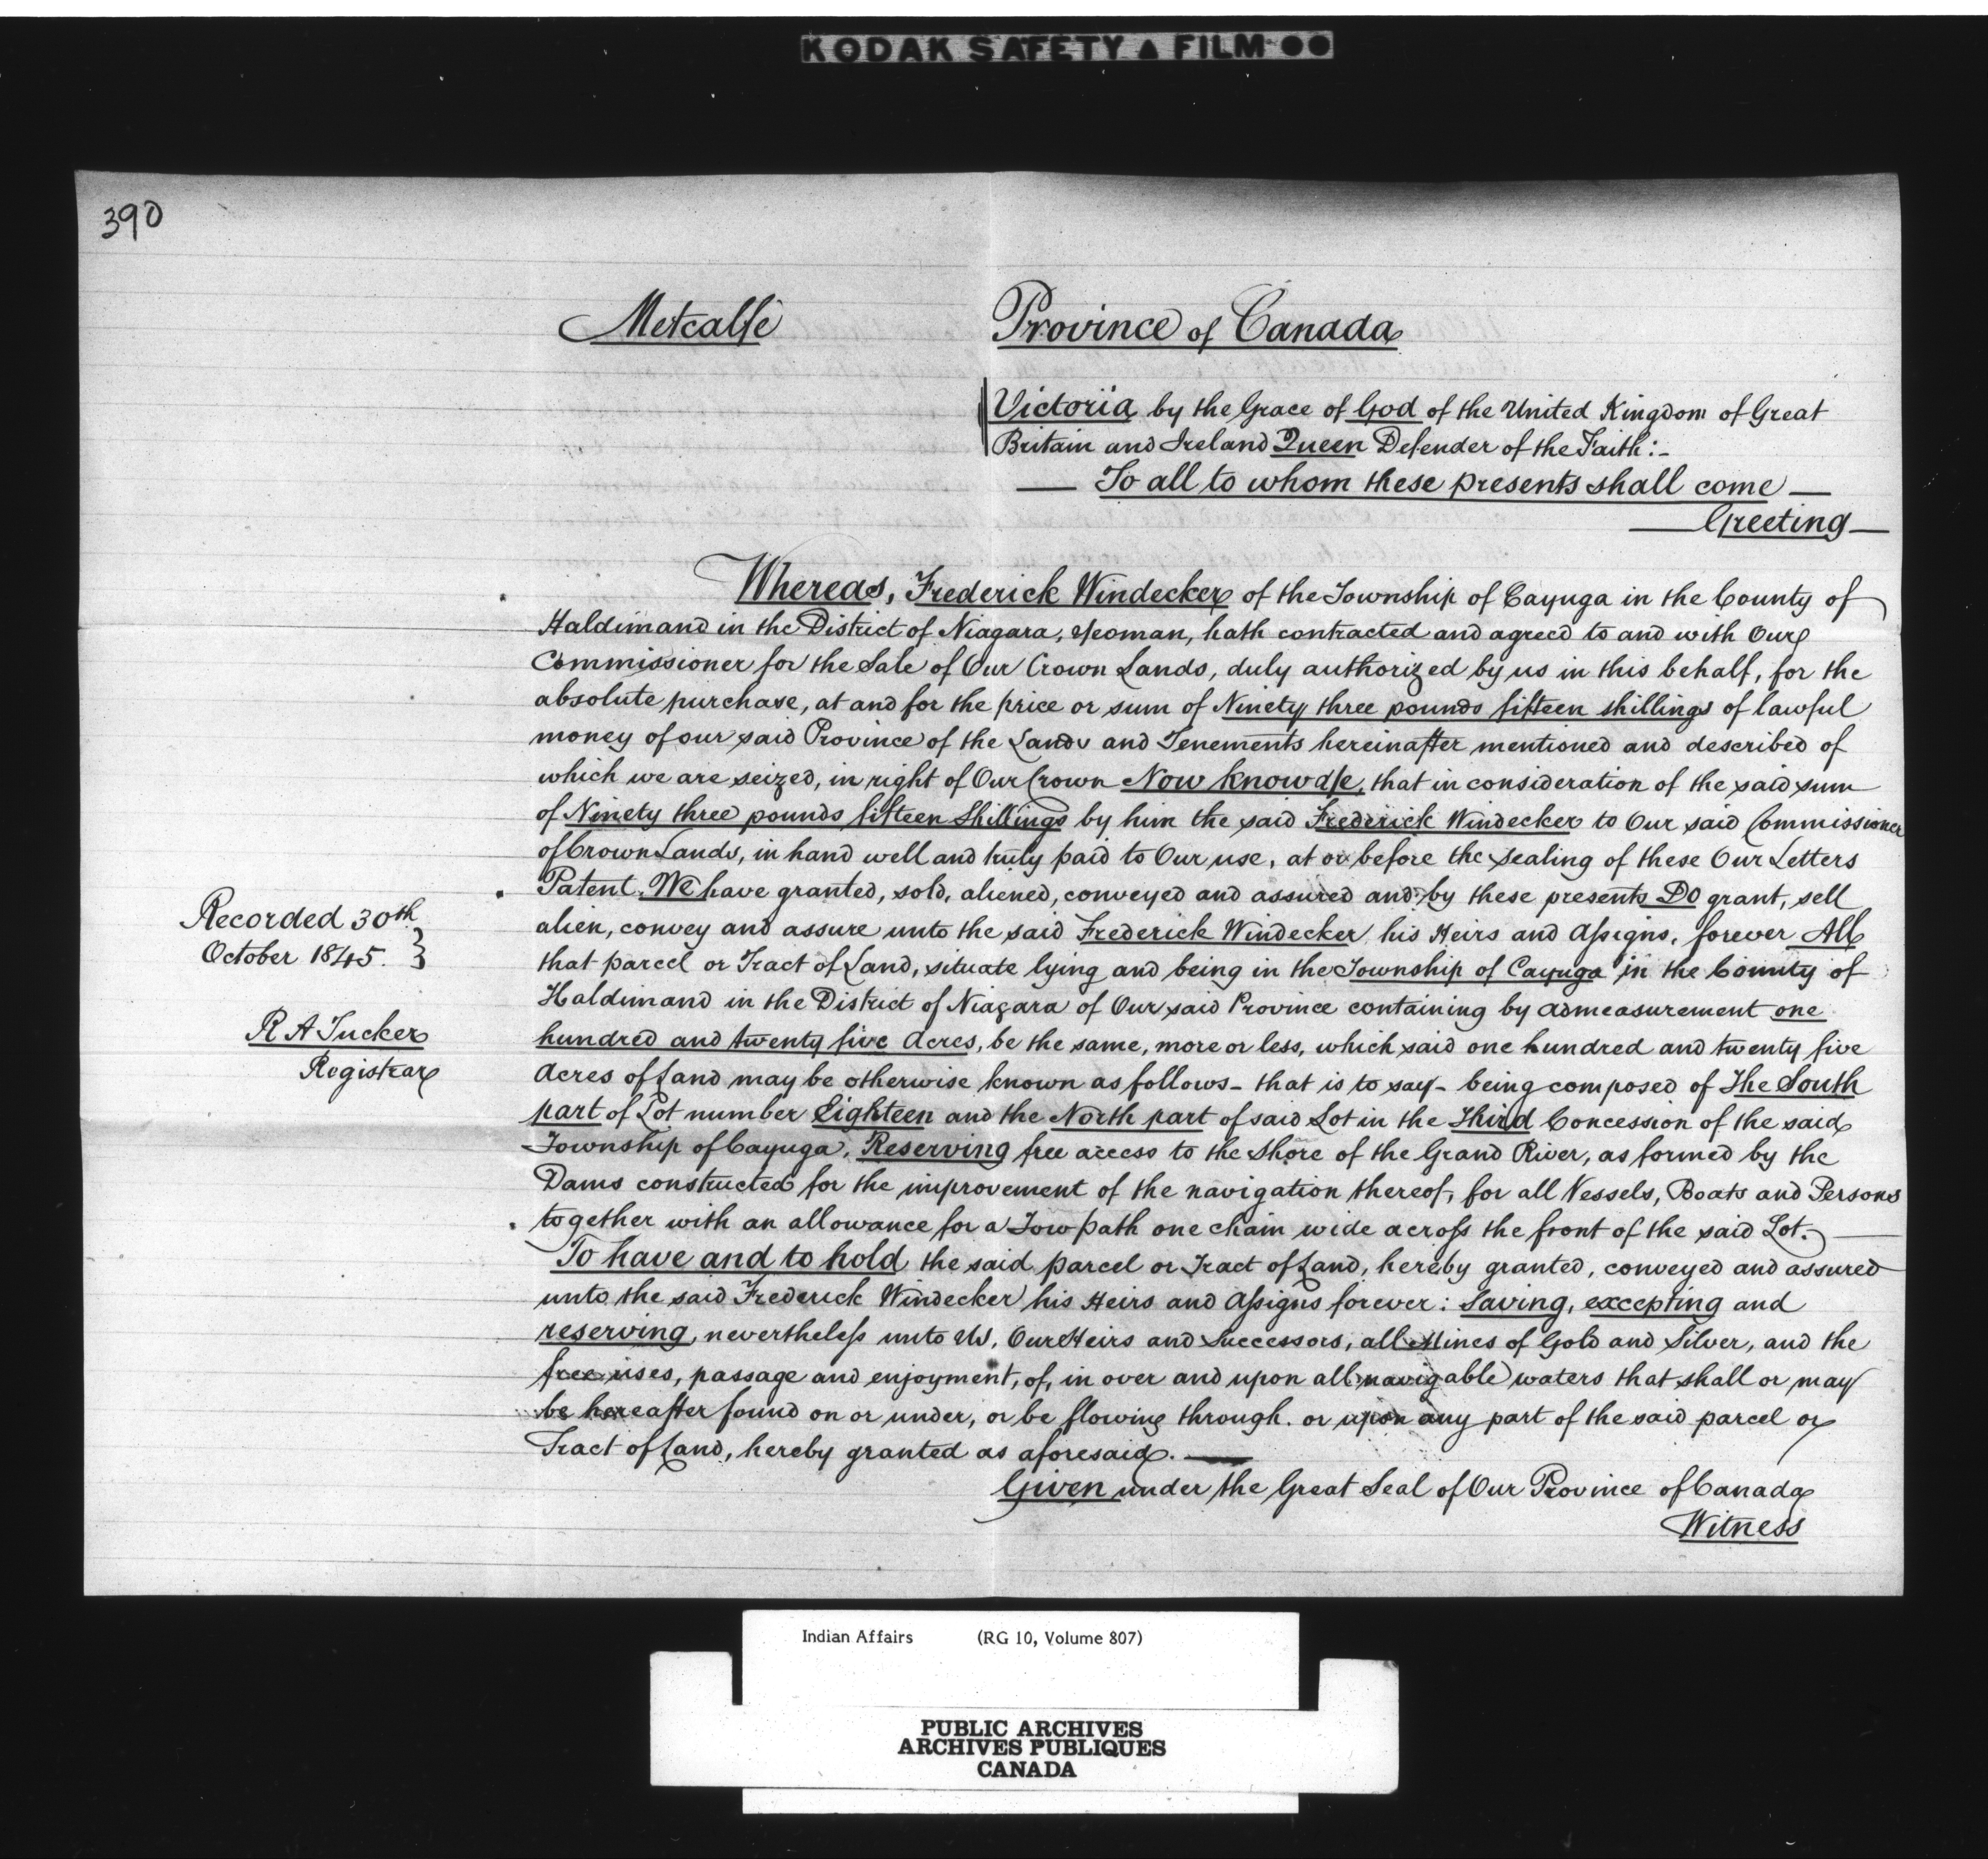 KODAK SAFETY ▲ FILM ●●
390
Metcalfe
Province of Canada
Victoria by the Grace of God of the United Kingdom of Great
Britain and Ireland Queen Defender of the Faith:-
— To all to whom these presents shall come —
— Greeting —
Whereas, Frederick Windecker of the Township of Cayuga in the County of
Haldimand in the District of Niagara, Yeoman, hath contracted and agreed to and with Our
Commissioner for the Sale of Our Crown Lands, duly authorized by us in this behalf, for the
absolute purchase, at and for the price or sum of Ninety three pounds fifteen shillings of lawful
money of our said Province of the Lands and Tenements hereinafter mentioned and described of
which we are seized, in right of Our Crown Now know Ye, that in consideration of the said sum
of Ninety three pounds fifteen Shillings by him the said Frederick Windecker to Our said Commissioner
of Crown Lands, in hand well and truly paid to Our use, at or before the sealing of these Our Letters
Patent. We have granted, sold, aliened, conveyed and assured and by these presents Do grant, sell
alien, convey and assure unto the said Frederick Windecker his Heirs and Assigns, forever All
that parcel or Tract of Land, situate lying and being in the Township of Cayuga in the County of
Haldimand in the District of Niagara of Our said Province containing by admeasurement one
hundred and twenty five Acres, be the same, more or less, which said one hundred and twenty five
Acres of Land may be otherwise known as follows- that is to say- being composed of The South
part of Lot number Eighteen and the North part of said Lot in the Third Concession of the said
Township of Cayuga, Reserving free access to the Shore of the Grand River, as formed by the
Dams constructed for the improvement of the navigation thereof, for all Vessels, Boats and Persons
together with an allowance for a Tow path one chain wide across the front of the said Lot. —
To have and to hold the said parcel or Tract of Land, hereby granted, conveyed and assured
unto the said Frederick Windecker his Heirs and Assigns forever: Saving, excepting and
reserving, nevertheless unto Us, Our Heirs and Successors, all Mines of Gold and Silver, and the
free uses, passage and enjoyment, of, in over and upon all navigable waters that shall or may
be hereafter found on or under, or be flowing through. or upon any part of the said parcel or
Tract of Land, hereby granted as aforesaid. —
Given under the Great Seal of Our Province of Canada
Witness
Recorded 30th
October 1845. }
R A Tucker
Registrar
Indian Affairs (RG 10, Volume 807)
PUBLIC ARCHIVES
ARCHIVES PUBLIQUES
CANADA